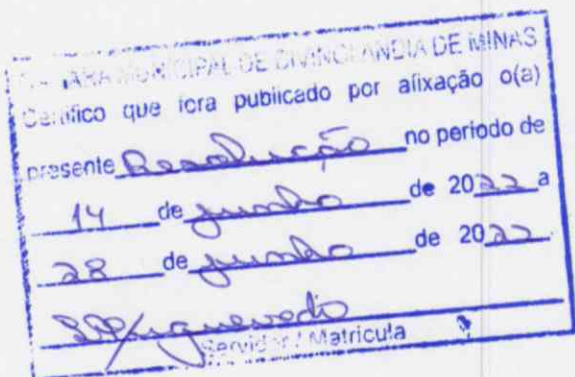 CÂMARA MUNICIPAL DE DIVINOLANDIA DE MINAS
Certifico que fora publicado por afixação o(a)
presente Resolução no período de
14 de junho de 2022 a
28 de junho de 2022.
Servidor / Matricula